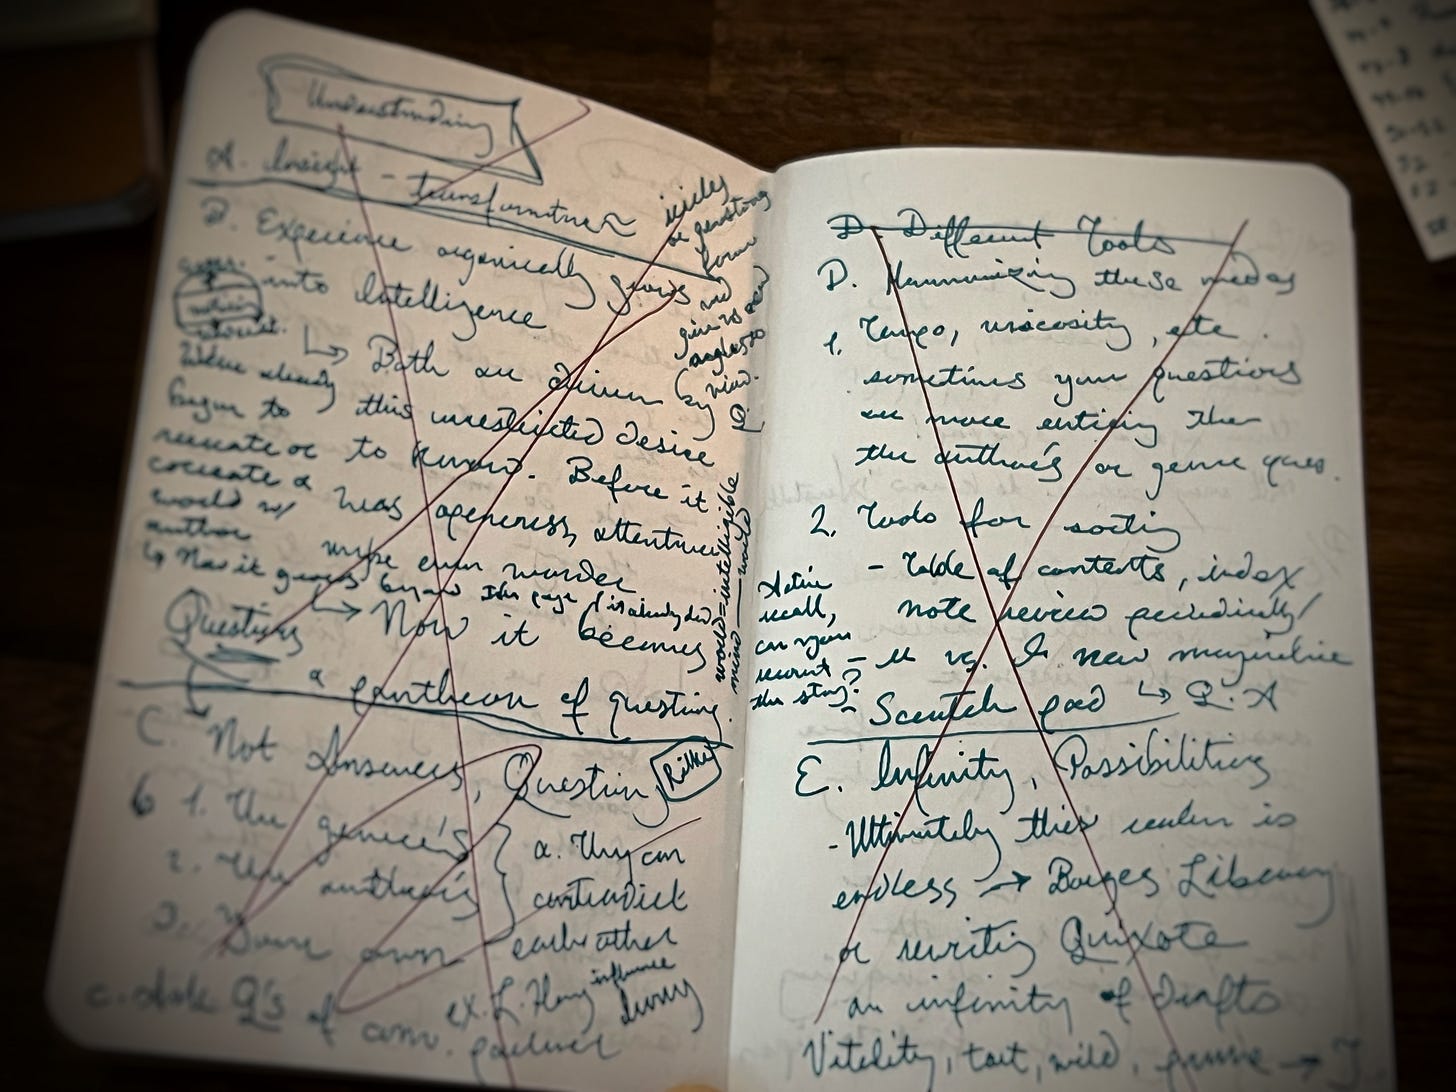 Understanding
A. Insight - transformative
B. Experience organically grows
into Intelligence
↳ Both are driven by
this unrestricted desire
to know. Before it
was openness, attentive
maybe even wonder
↳ Now it becomes
a pantheon of questions.
form
and
give us new
angles to
view.
Q.
We've already
begun to
recreate or
cocreate a
world w/
author
↳ Now it grows beyond the page
Questions
world = intelligible
mind — world
C. Not Answers, Questions
Rilke
1. The genre's
2. The author's
3. Your own
a. They can
contradict
each other
influence
c. Ask Q's of conv. partner
D. Different Tools
D. Harmonizing these modes
1. Tempo, viscosity, etc.
sometimes your questions
are more enticing than
the author's or genre ques.
2. Tools for sorting
- Table of contents, index
note review periodically/
- vs. new marginalia
↳ Q. A
- Scratch pad
Active
recall,
can you
recount
this story?
E. Infinity, Possibilities
- Ultimately this realm is
endless → Borges Library
or rewriting Quixote
an infinity of drafts
Vitality, taut, wild, →